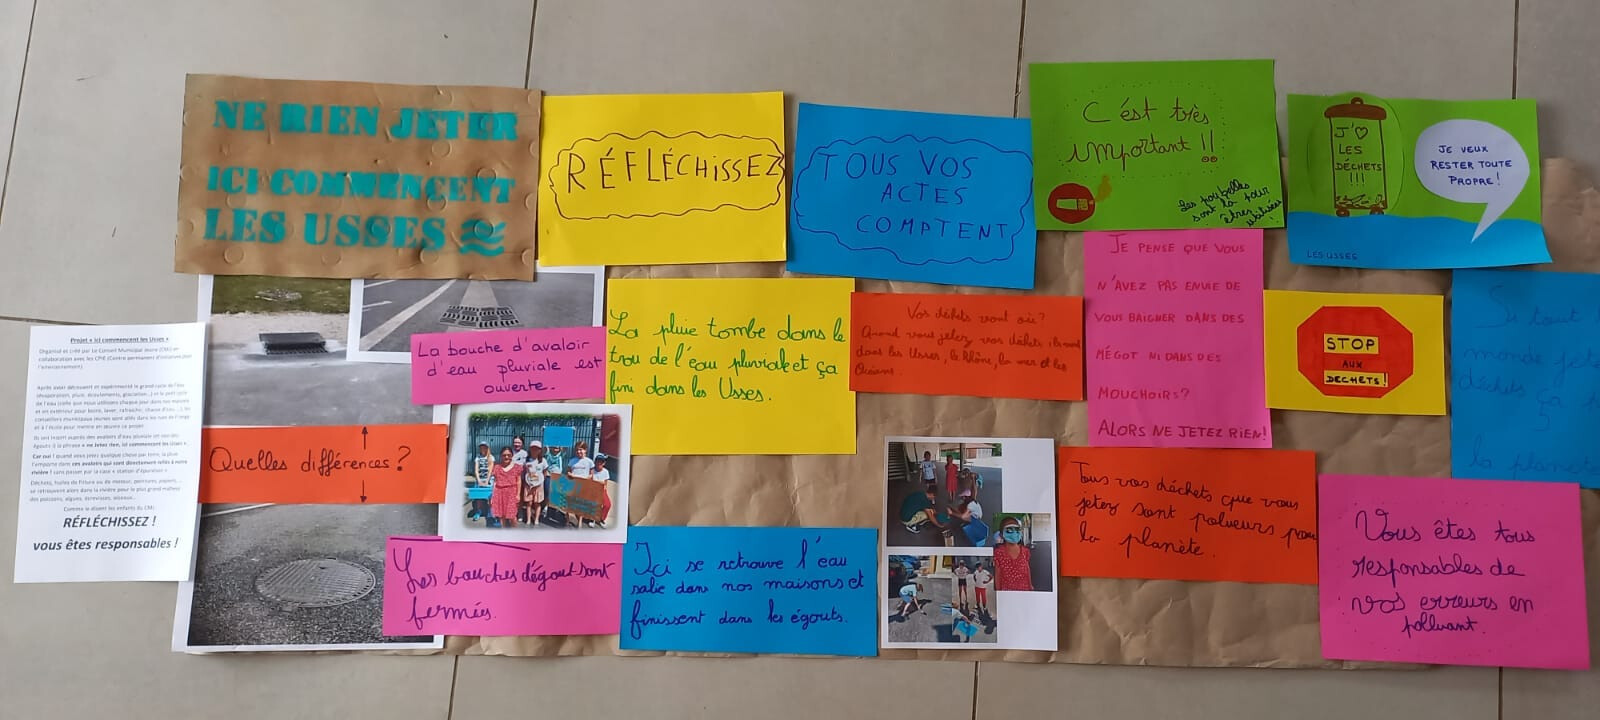 NE RIEN JETER
ICI COMMENCENT
LES USSES
RÉFLÉCHISSEZ
TOUS VOS
ACTES
COMPTENT
C'est très
important !!
Les poubelles
sont là pour
êtres
utilisées !
J'♡
LES
DÉCHETS
!!!
JE VEUX
RESTER TOUTE
PROPRE!
LES USSES
Projet « Ici commencent les Usses »
Organisé et créé par le Conseil Municipal Jeune (CMJ) en
collaboration avec les CPIE (Centre permanent d'initiatives pour
l'environnement).
Après avoir découvert et expérimenté le grand cycle de l'eau
(évaporation, pluie, écoulements, glaciation...) et le petit cycle
de l'eau (celle que nous utilisons chaque jour dans nos maisons
et en extérieur pour boire, laver, rafraichir, chasse d'eau...), les
conseillers municipaux jeunes sont allés dans les rues de
et à l'école pour mettre en œuvre ce projet.
Ils ont inscrit auprès des avaloirs d'eau pluviale (et non des
égouts !) la phrase « ne jetez rien, ici commencent les Usses ».
Car oui ! quand vous jetez quelque chose par terre, la pluie
l'emporte dans ces avaloirs qui sont directement reliés à notre
rivière ! sans passer par la case « station d'épuration ».
Déchets, huiles de friture ou de moteur, peintures, papiers, ...
se retrouvent alors dans la rivière pour le plus grand malheur
des poissons, algues, écrevisses, oiseaux...
Comme le disent les enfants du CMJ
RÉFLÉCHISSEZ !
vous êtes responsables !
La bouche d'avaloir
d'eau pluviale est
ouverte.
Quelles différences ?
Les bouches d'égout sont
fermées.
La pluie tombe dans le
trou de l'eau pluviale et ça
fini dans les Usses.
Ici se retrouve l'eau
salie dans nos maisons et
finissent dans les égouts.
Vos déchets vont où ?
Quand vous jetez vos déchets ils vont
dans les Usses, le Rhône, la mer et les
Océans.
JE PENSE QUE VOUS
N'AVEZ PAS ENVIE DE
VOUS BAIGNER DANS DES
MÉGOT NI DANS DES
MOUCHOIRS?
ALORS NE JETEZ RIEN!
STOP
AUX
DECHETS!
Tous vos déchets que vous
jetez sont polueurs pour
la planète.
Si tout l
monde jet
déchets ça f
la planèt
Vous êtes tous
responsables de
vos erreurs en
polluant.